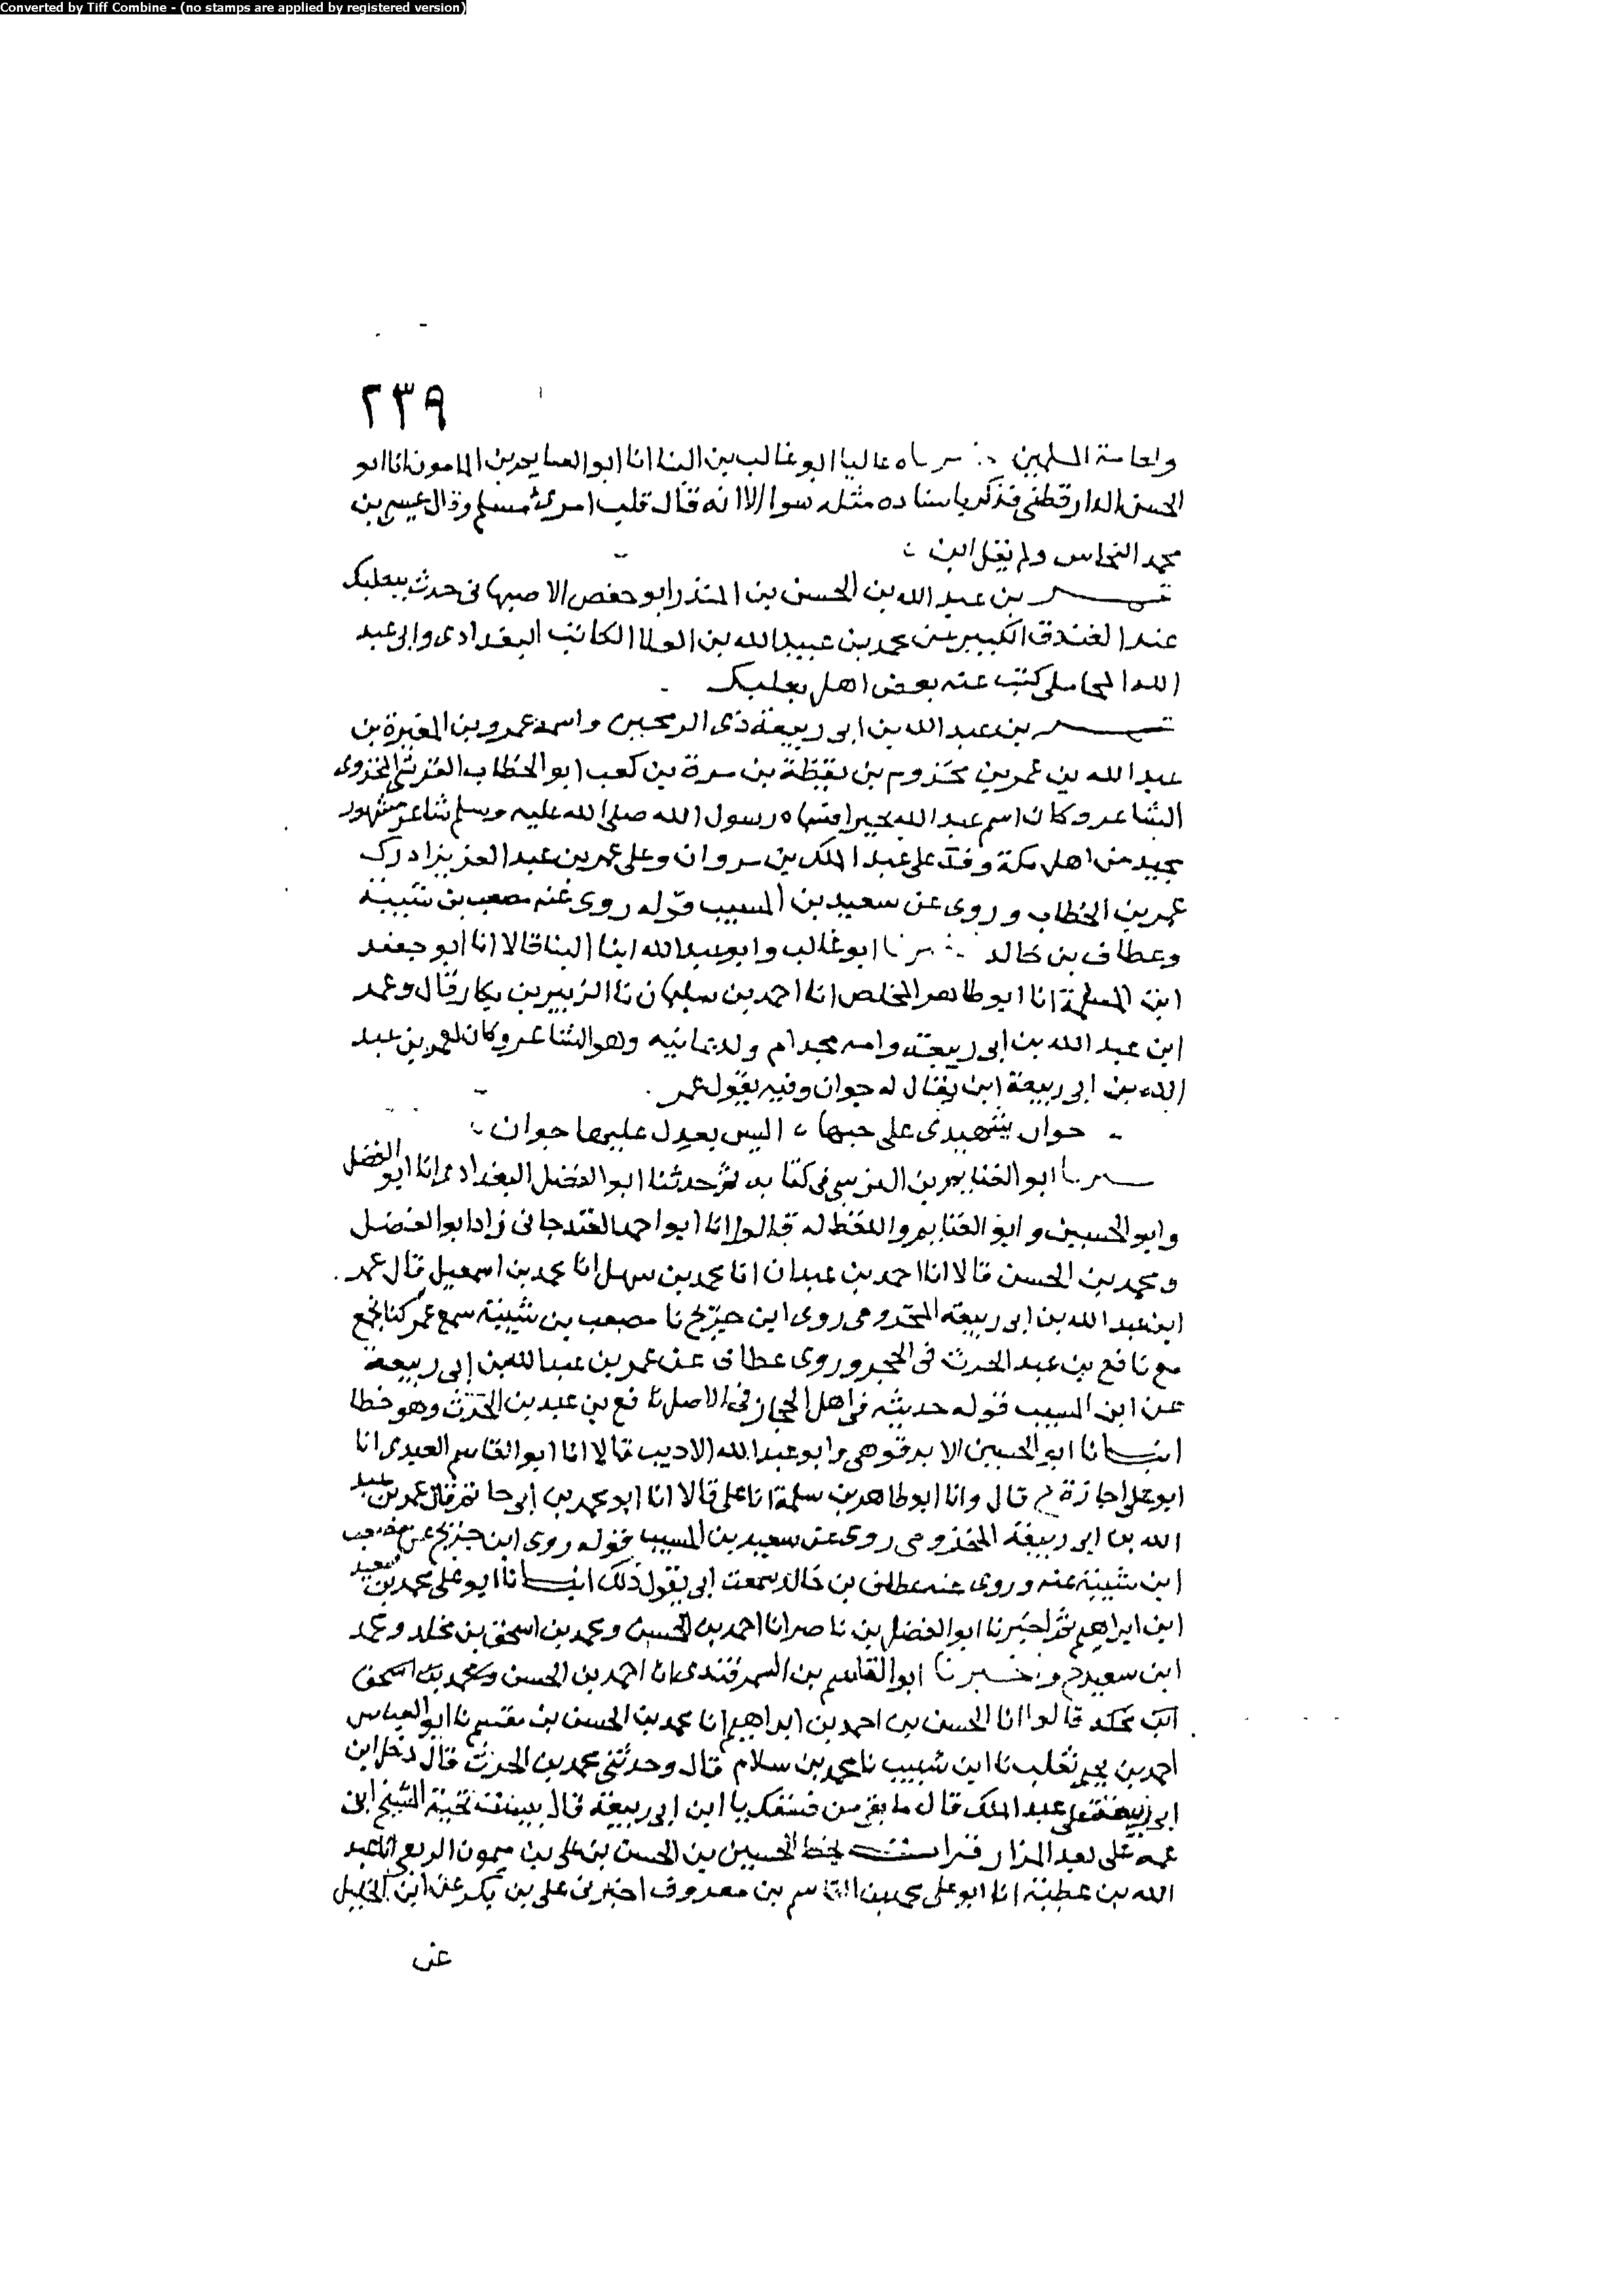 Converted by Tiff Combine - (no stamps are applied by registered version)
٢٣٩
ولعامة المسلمين ناه عاليا ابو غالب بن البنا انا ابو الغنايم بن المامون انا ابو
الحسن الدارقطني فذكر باسناده مثله سوا الا انه قال قلب امرئ مسلم وقال عيسى بن
محمد النحاس ولم يقل ابن
عمر بن عبد الله بن الحسن بن المنذر ابو حفص الاصبهاني حدث ببعلبك
عند الفندق الكبير عن محمد بن عبيد الله بن العلا الكاتب البغدادى وابى عبد
الله المحاملى كتب عنه بعض اهل بعلبك
عمر بن عبد الله بن ابى ربيعة ذى الرمحين واسمه عمرو بن المغيرة بن
عبد الله بن عمر بن مخزوم بن يقظة بن مرة بن كعب ابو الخطاب القرشى المخزومى
الشاعر وكان اسم عبد الله بحيرا فسماه رسول الله صلى الله عليه وسلم شاعر مشهور
مجيد من اهل مكة وفد على عبد الملك بن مروان وعلى عمر بن عبد العزيز ادرك
عمر بن الخطاب وروى عن سعيد بن المسيب قوله روى عنه مصعب بن شيبة
وعطاف بن خالد نا ابو غالب وابو عبد الله ابنا البنا قالا انا ابو جعفر
ابن المسلمة انا ابو طاهر المخلص انا احمد بن سليمان نا الزبير بن بكار قال وعمر
ابن عبد الله بن ابى ربيعة وامه مجد ام ولد يمانيه وهو الشاعر وكان لعمر بن عبد
الله بن ابى ربيعة ابن يقال له جوان وفيه يقول عمر
جوان شهيدى على حبها اليس بعدل عليها جوان
نا ابو الغنايم بن النرسى فى كتابه ثم حدثنا ابو الفضل البغدادى انا ابو الفضل
وابو الحسين وابو الغنايم واللفظ له قالوا انا ابو احمد الغندجانى زاد ابو الفضل
ومحمد بن الحسن قالا انا احمد بن عبدان انا محمد بن سهل انا محمد بن اسمعيل قال عمر
ابن عبد الله بن ابى ربيعة المخزومى روى ابن جريج نا مصعب بن شيبة سمع عمر كنا نجمع
مع نافع بن عبد الحرث فى الحجر وروى عطاف عن عمر بن عبد الله بن ابى ربيعة
عن ابن المسيب قوله حديثه فى اهل الحجاز فى الاصل نافع بن عبد بن الحرث وهو خطا
انبانا ابو الحسين الابرقوهى وابو عبد الله الاديب قالا انا ابو القاسم العبدى انا
ابو على اجازة ح قال وانا ابو طاهر بن سلمة انا على قالا انا ابو محمد بن ابى حاتم قال عمر بن عبد
الله بن ابى ربيعة المخزومى روى عن سعيد بن المسيب قوله روى ابن جريج عن مصعب
ابن شيبة عنه وروى عنه عطاف بن خالد سمعت ابى يقول ذلك انبانا ابو على محمد بن سعيد
ابن ابراهيم ثم اخبرنا ابو الفضل بن ناصر انا احمد بن الحسين ومحمد بن اسحق بن مخلد ومحمد
ابن سعيد ح واخبرنا ابو القاسم بن السمرقندى انا احمد بن الحسن ومحمد بن اسحق
ابن مخلد قالوا انا الحسن بن احمد بن ابراهيم انا محمد بن الحسن بن مقسم نا ابو العباس
احمد بن يحيى ثعلب نا ابن شبيب نا محمد بن سلام قال وحدثنى محمد بن الحرث قال دخل ابن
ابى ربيعة على عبد الملك قال ما بقى من فسقك يا ابن ابى ربيعة قال بيست تحية الشيخ ابن
عمه على بعد المزار قرات بخط الحسين بن الحسن بن على بن ميمون الربعى انا عبد
الله بن عطية انا ابو على محمد بن القاسم بن معروف اخبرنى على بن بكر عن ابن الخليل
عن